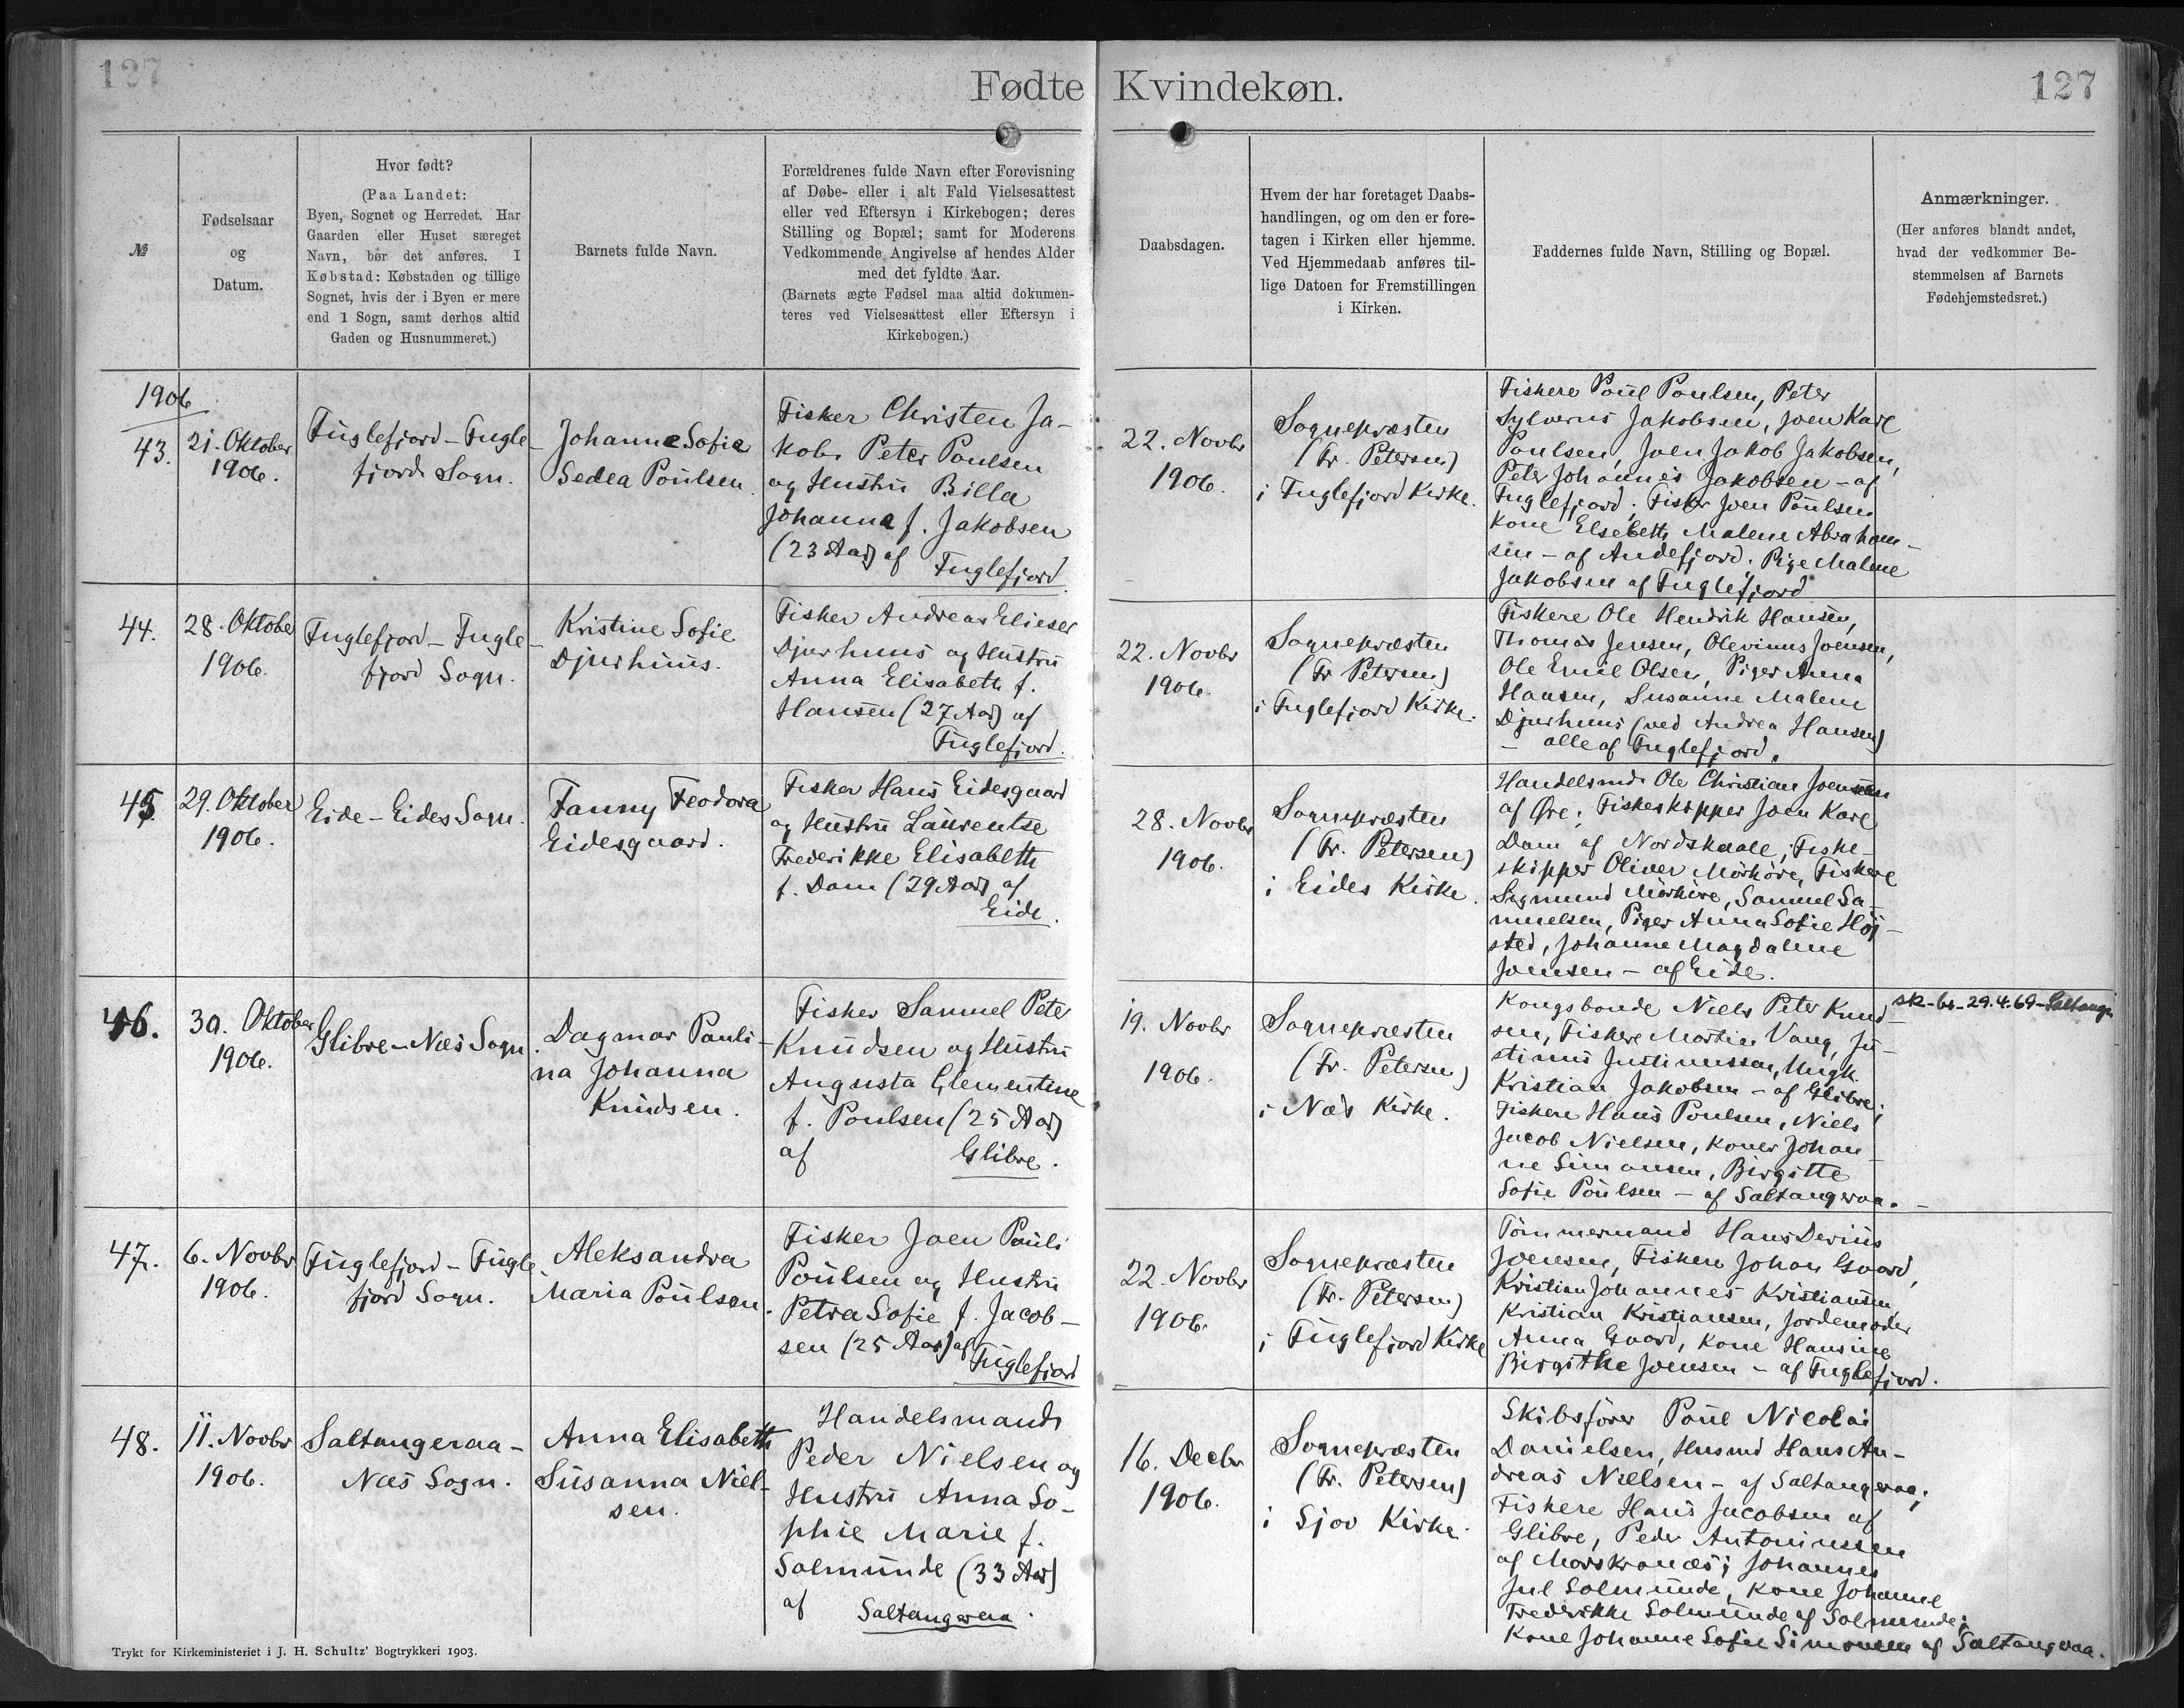 127
Fødte Kvindekøn.
127
№
Fødselsaar
og
Datum.
Hvor født?
(Paa Landet:
Byen, Sognet og Herredet. Har
Gaarden eller Huset særeget
Navn, bør det anføres. I
Købstad: Købstaden og tillige
Sognet, hvis der i Byen er mere
end 1 Sogn, samt derhos altid
Gaden og Husnummeret.)
Barnets fulde Navn.
Forældrenes fulde Navn efter Forevisning
af Døbe- eller i alt Fald Vielsesattest
eller ved Eftersyn i Kirkebogen; deres
Stilling og Bopæl; samt for Moderens
Vedkommende Angivelse af hendes Alder
med det fyldte Aar.
(Barnets ægte Fødsel maa altid dokumen-
teres ved Vielsesattest eller Eftersyn i
Kirkebogen.)
Daabsdagen.
Hvem der har foretaget Daabs-
handlingen, og om den er fore-
tagen i Kirken eller hjemme.
Ved Hjemmedaab anføres til-
lige Datoen for Fremstillingen
i Kirken.
Faddernes fulde Navn, Stilling og Bopæl.
Anmærkninger.
(Her anføres blandt andet,
hvad der vedkommer Be-
stemmelsen af Barnets
Fødehjemstedsret.)
1906
43.
21. Oktober
1906.
Fuglefjord - Fugle-
fjords Sogn.
Johanne Sofie
Sedea Poulsen.
Fisker Christen Ja-
kob Peter Poulsen
og Hustru Billa
Johanna f. Jakobsen
(23 Aar) af
Fuglefjord
22. Novbr
1906.
Sognepræsten
(Fr. Petersen)
i Fuglefjord Kirke.
Fiskere Poul Poulsen, Peter
Sylverus Jakobsen, Joen Karl
Poulsen, Joen Jakob Jakobsen,
Peter Johannes Jakobsen - af
Fuglefjord; Fisker Joen Poulsen
Kone Elsebeth Malene Abraham-
sen - af Andefjord. Pige Malene
Jakobsen af Fuglefjord
44.
28. Oktober
1906.
Fuglefjord - Fugle-
fjord Sogn.
Kristine Sofie
Djurhuus.
Fisker Andreas Elieser
Djurhuus og Hustru
Anna Elisabeth f.
Hansen (27 Aar) af
Fuglefjord.
22. Novbr
1906.
Sognepræsten
(Fr Petersen)
i Fuglefjord Kirke.
Fiskere Ole Hendrik Hansen,
Thomas Jensen, Olevinus Joensen,
Ole Emil Olsen, Piger Anna
Hansen, Susanne Malene
Djurhuus (ved Andrea Hansen)
- alle af Fuglefjord.
45.
29. Oktober
1906.
Eide - Eides Sogn.
Fanny Feodora
Eidesgaard.
Fisker Hans Eidesgaard
og Hustru Laurentse
Frederikke Elisabeth
f. Dam (29 Aar) af
Eide.
28. Novbr
1906.
Sognepræsten
(Fr. Petersen)
i Eides Kirke.
Handelsmd. Ole Christian Joensen
af Øre; Fiskeskipper Joen Karl
Dam af Nordskaale; Fiske-
skipper Oliver Mörköre, Fiskere
Sigmund Mörköre, Samuel Sa-
muelsen, Piger Anna Sofie Höj-
sted, Johanne Magdalene
Joensen - af Eide.
46.
30. Oktober
1906.
Glibre - Næs Sogn.
Dagmar Pauli-
na Johanna
Knudsen.
Fisker Samuel Peter
Knudsen og Hustru
Augusta Clementine
f. Poulsen (25 Aar)
af Glibre.
19. Novbr
1906.
Sognepræsten
(Fr. Petersen)
i Næs Kirke.
Kongsbonde Niels Peter Knud-
sen, Fiskere Martin Vang, Ju-
stinus Justinussen, Ungk.
Kristian Jakobsen - af Glibre;
Fiskere Hans Poulsen, Niels
Jacob Nielsen, Koner Johan-
ne Simonsen, Birgitte
Sofie Poulsen - af Saltangeraa.
sk-br-29.4.69-
47.
6. Novbr
1906.
Fuglefjord - Fugle-
fjord Sogn.
Aleksandra
Maria Poulsen.
Fisker Joen Pauli
Poulsen og Hustru
Petra Sofie f. Jacob-
sen (25 Aar) af
Fuglefjord
22. Novbr
1906.
Sognepræsten
(Fr. Petersen)
i Fuglefjord Kirke
Tömmermand Hans Derius
Joensen, Fiskere Johan Gaard,
Kristian Johannes Kristiansen,
Kristian Kristiansen, Jordemoder
Anna Gaard, Kone Hansine
Birgithe Joensen - af Fuglefjord.
48.
11. Novbr
1906.
Saltangeraa -
Næs Sogn.
Anna Elisabeth
Susanna Niel-
sen.
Handelsmand
Peder Nielsen og
Hustru Anna So-
phie Marie f.
Solmunde (33 Aar)
af Saltangeraa.
16. Decbr
1906.
Sognepræsten
(Fr. Petersen)
i Sjov Kirke.
Skibsfører Poul Nicolai
Danielsen, Husmd Hans An-
dreas Nielsen - af Saltangeraa;
Fiskere Hans Jacobsen af
Glibre, Peder Antoniussen
af Morskranæs; Johannes
Jul Solmunde, Kone Johanne
Frederikke Solmunde af Solmunde;
Kone Johanne Sofie Simonsen af Saltangeraa.
Trykt for Kirkeministeriet i J. H. Schultz' Bogtrykkeri 1903.